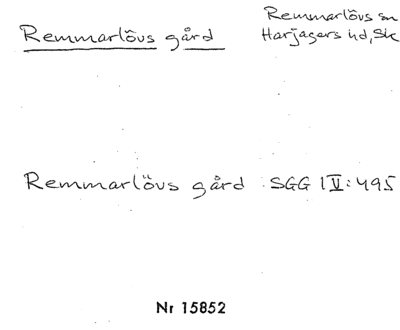 Remmarlövs gård
Remmarlövs sn
Harjagers hd, Sk
Remmarlövs gård SGG IV:495
Nr 15852